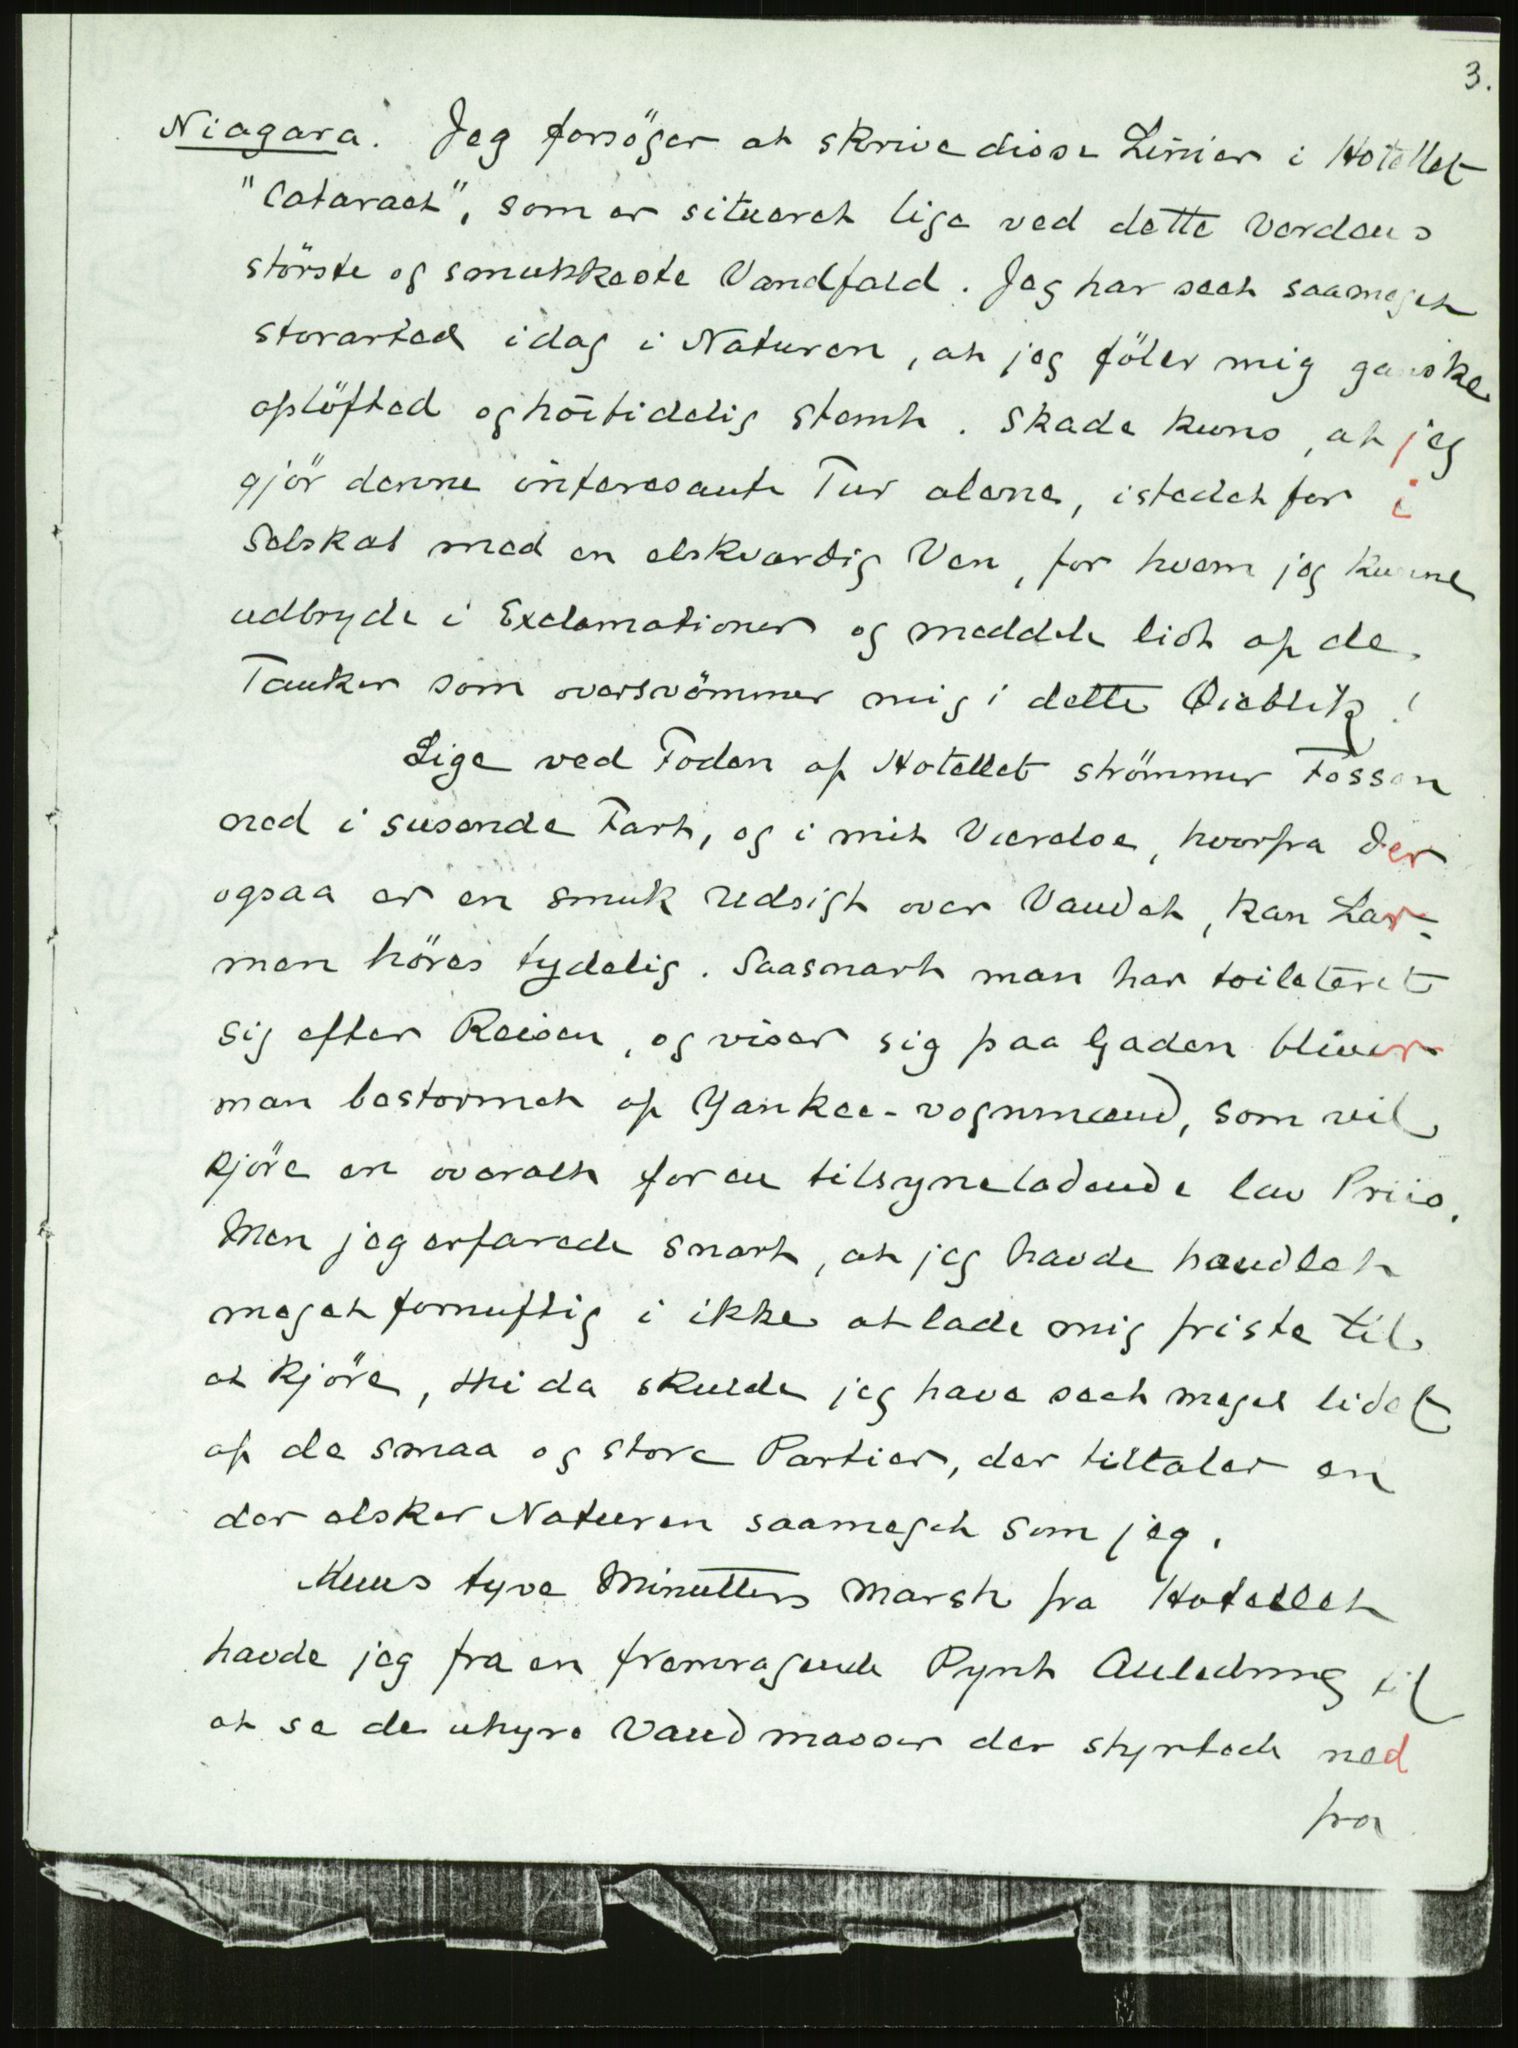 3.
Niagara. Jeg forsöger at skrive disse Linier i Hotellet
"Cataract", som er situeret lige ved dette Verdens
störste og smukkeste Vandfald. Jeg har seet saameget
storarted idag i Naturen, at jeg föler mig ganske
oplöfted og höitidelig stemt. Skade kuns, at jeg
gjör denne interesante Tur alene, istedet for i
Selskab med en elskværdig Ven, for hvem jeg kunne
udbryde i Exclamationer og meddele lidt af de
Tanker som oversvömmer mig i dette Øieblik!
Lige ved Foden af Hotellet strömmer Fossen
ned i susende Fart, og i mit Værelse, hvorfra der
ogsaa er en smuk Udsigt over Vandet, kan Lar-
men höres tydelig. Saasnart man har toileteret
sig efter Reisen, og viser sig paa Gaden bliver
man bestormet af Yankee-vognmænd, som vil
kjöre en overalt for en tilsyneladende lav Priis.
Men jeg erfarede snart, at jeg havde handlet
meget fornuftig i ikke at lade mig friste til
at kjöre, thi da skulde jeg have seet meget lidet
af de smaa og store Partier, der tiltaler en
der elsker Naturen saameget som jeg.
Kuns tyve Minutters Marsh fra Hotellet
havde jeg fra en fremragende Pynt Anledning til
at se de uhyre Vandmasser der styrtede ned
fra